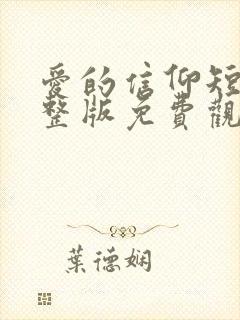 愛的信仰短
整版免費觀
葉德嫻